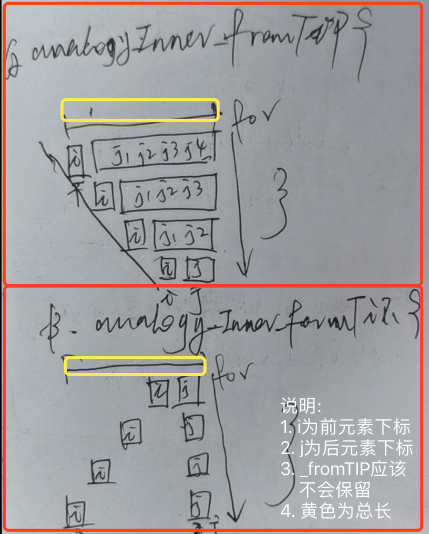 analogyInner_fromTIP {
for
i j1 j2 j3 j4
i j1 j2 j3
i j1 j2
i j
}
i j
β. analogy_Inner_formTiR {
for
i j
i j
i j
i j
}
说明:
1. i为前元素下标
2. j为后元素下标
3. _fromTIP应该
不会保留
4. 黄色为总长